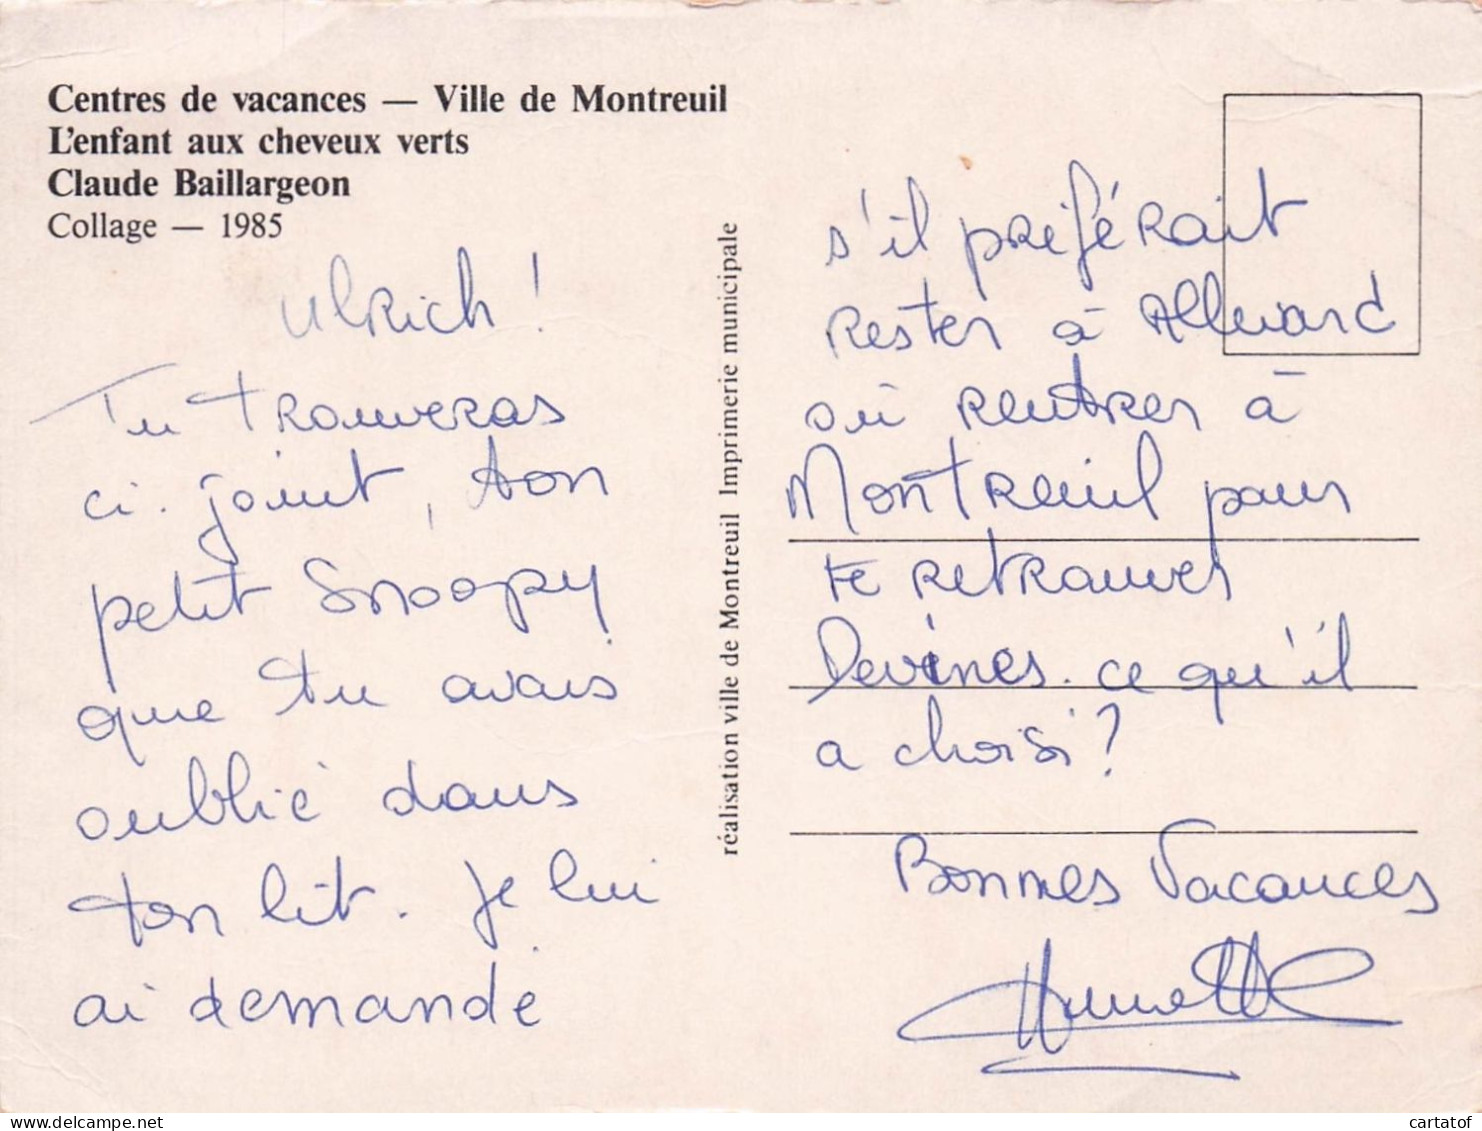 Centres de vacances — Ville de Montreuil
L'enfant aux cheveux verts
Claude Baillargeon
Collage — 1985
Ulrich !
Tu trouveras
ci. joint, ton
petit Snoopy
que tu avais
oublié dans
ton lit. Je lui
ai demandé
réalisation ville de Montreuil Imprimerie municipale
s'il préférait
rester à Allevard
ou rentrer à
Montreuil pour
te retrouver
devines. ce qu'il
a choisi ?
Bonnes Vacances
cartatof